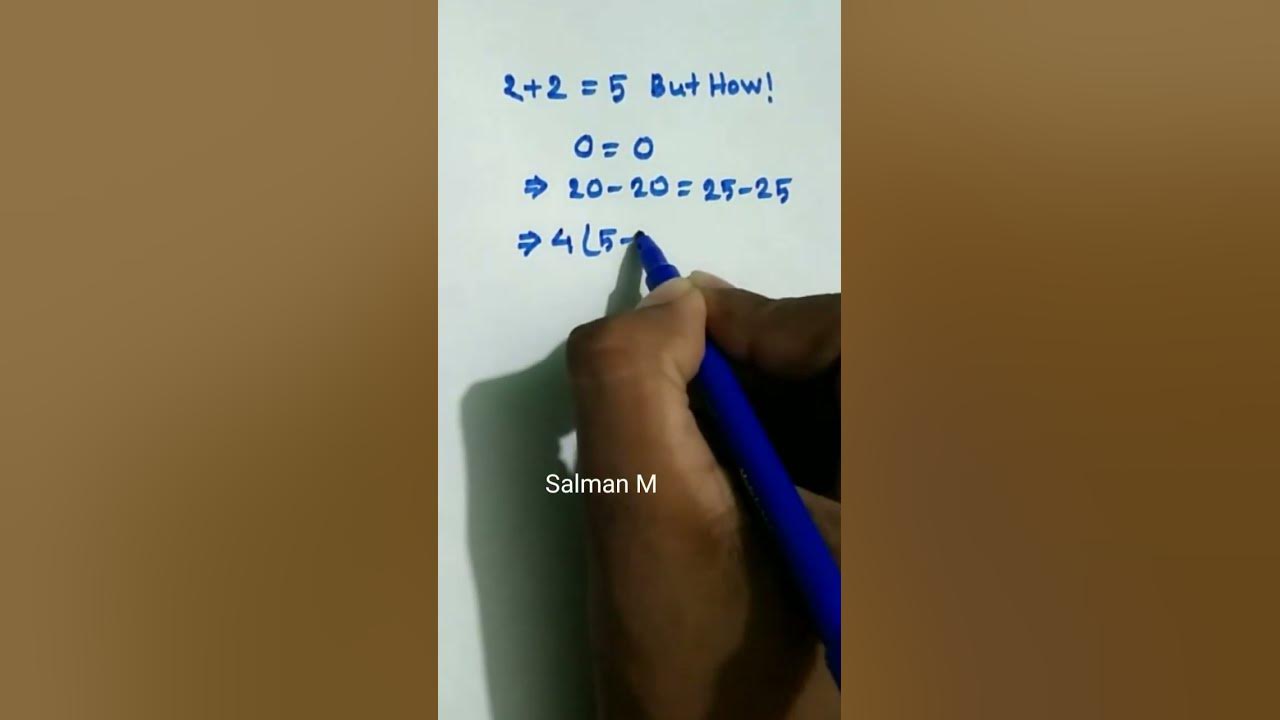 2+2 = 5 But How!
0 = 0
⇒ 20-20 = 25-25
⇒ 4(5-
Salman M